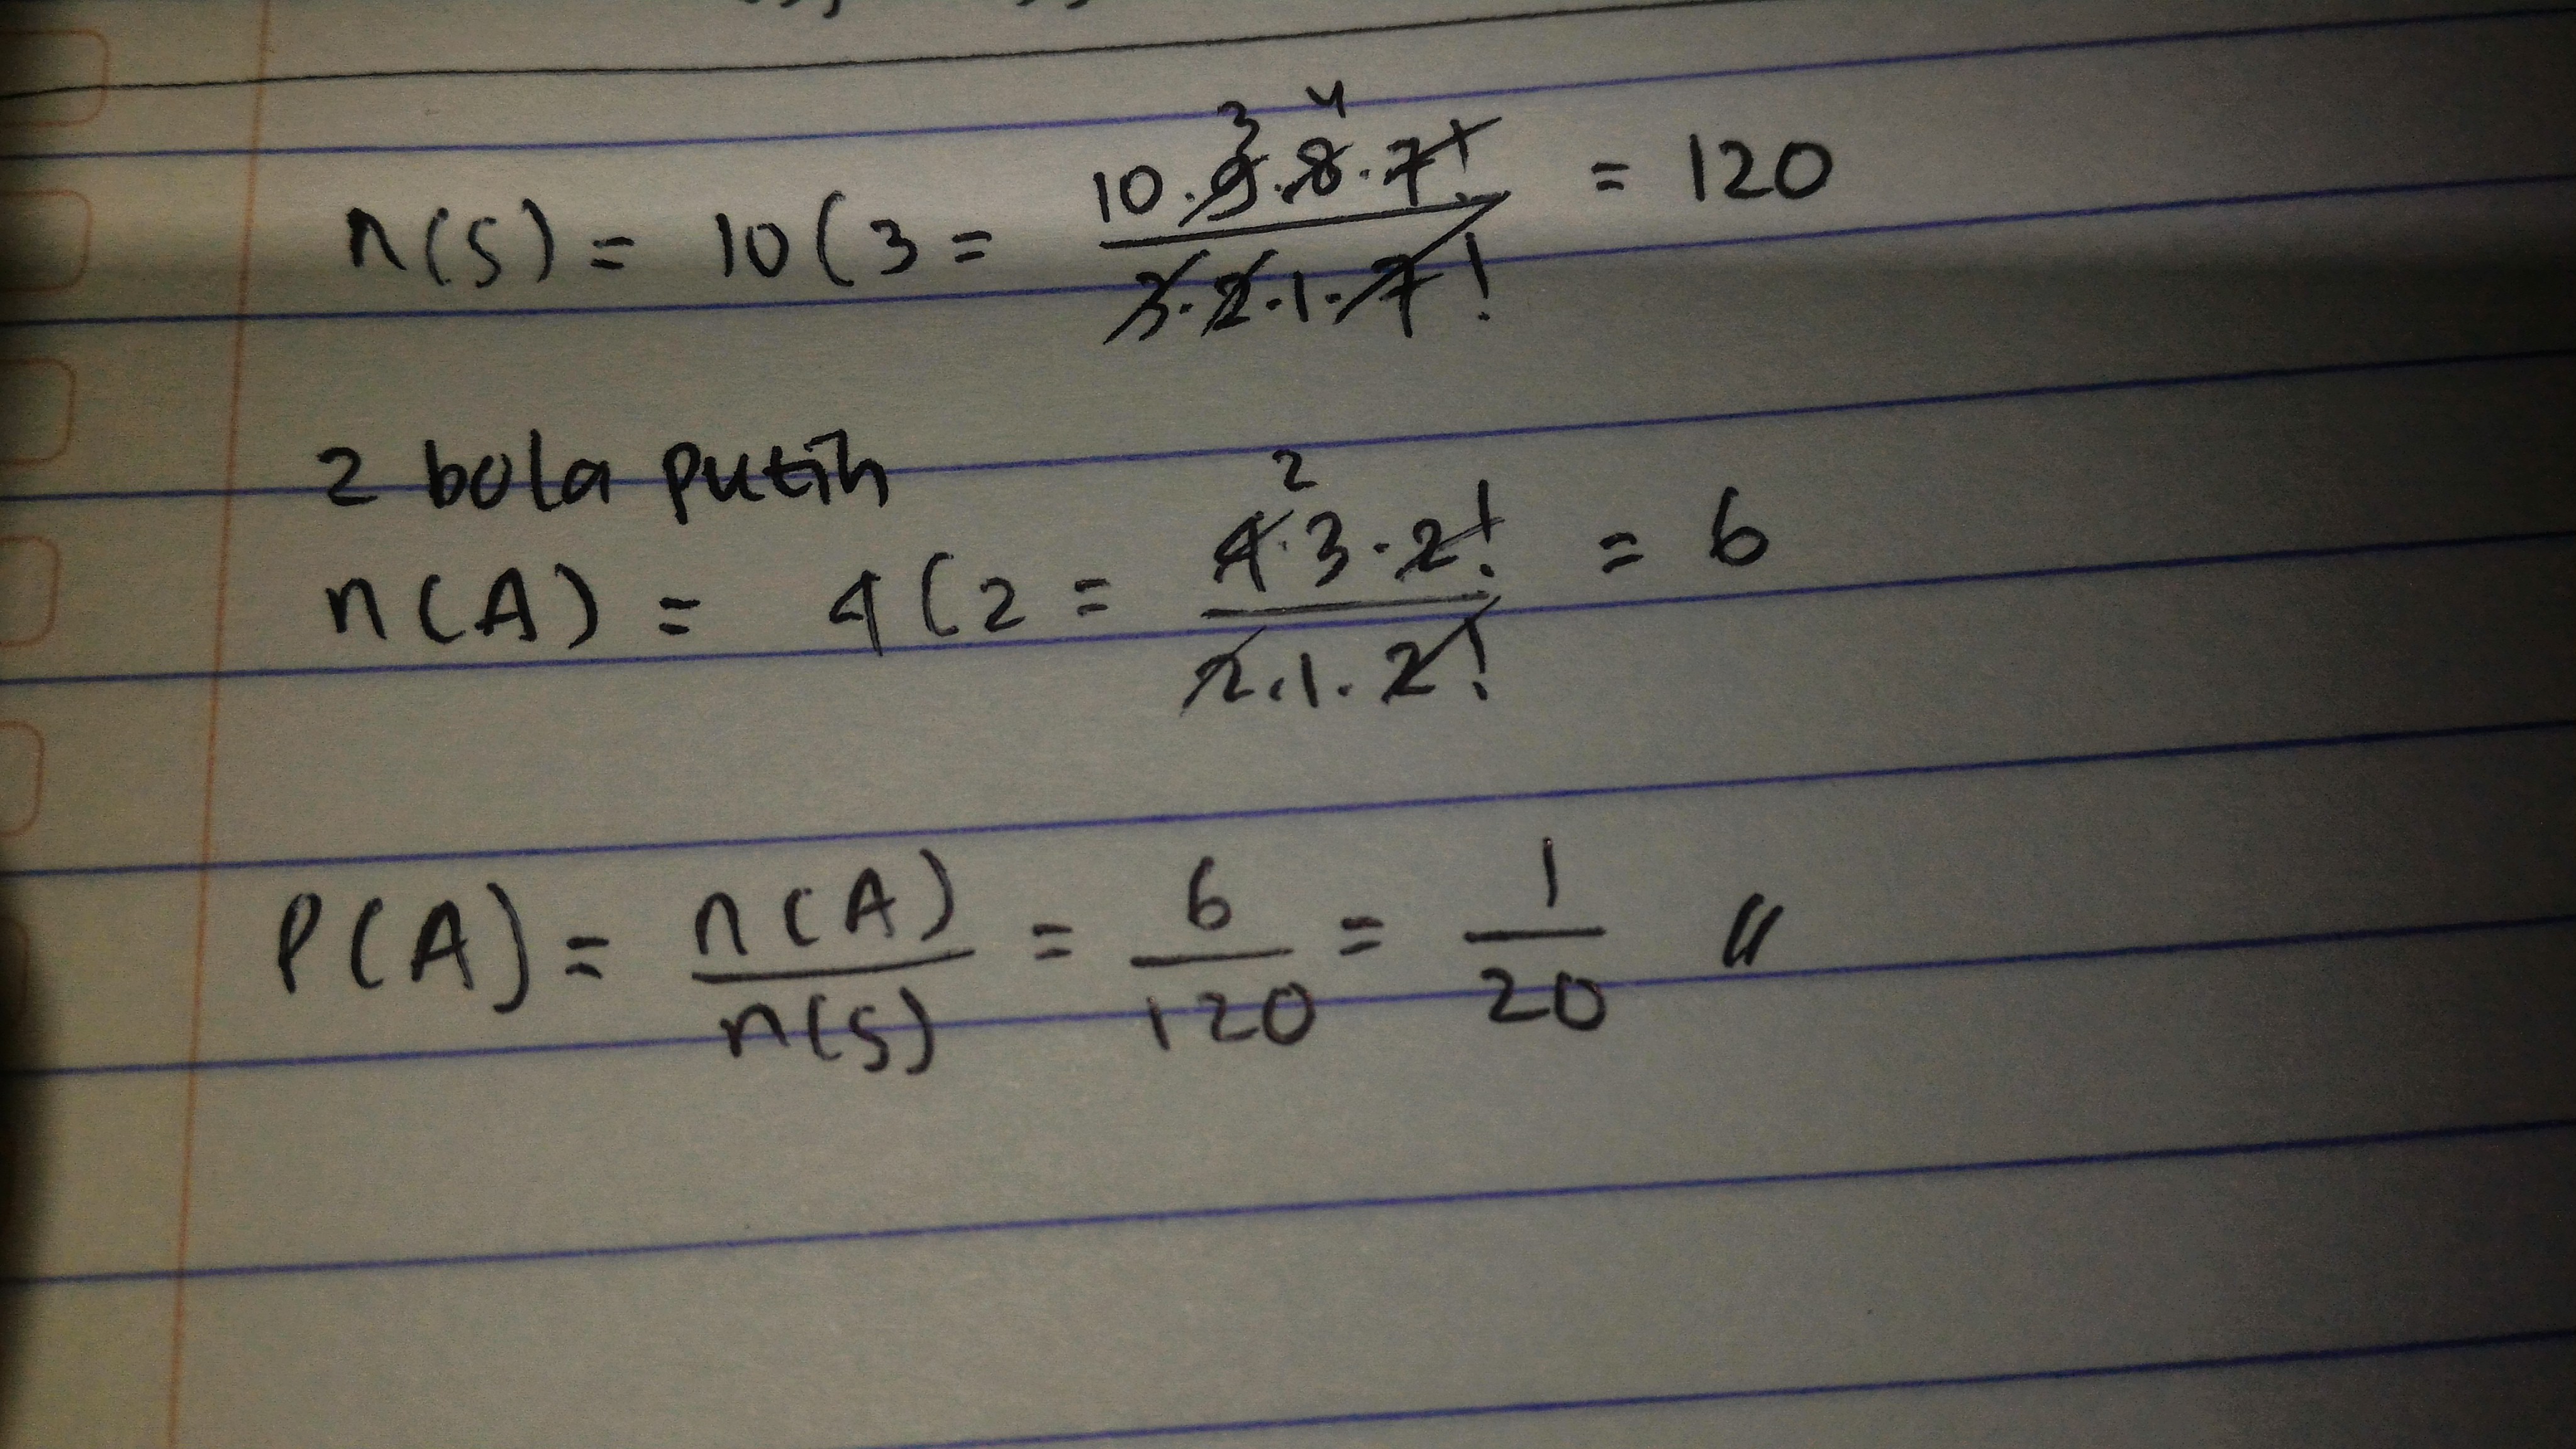 n(S) = 10C3 = 10.9.8.7! / 3.2.1.7! = 120
3 4
2 bola putih
n(A) = 4C2 = 4.3.2! / 2.1.2! = 6
2
P(A) = n(A) / n(S) = 6 / 120 = 1 / 20 //